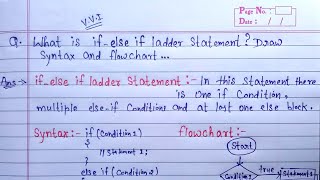 V.V.I
Page No.:
Date: / /
Q. What is if-else if ladder Statement? Draw
Syntax and flowchart...
Ans → if-else if ladder Statement :- In this statement there
is one if Condition,
multiple else-if Conditions and at last one else block.
Syntax :- if (Condition 1) flowchart :-
{ Start
// Statement 1;
} Condition 1 true Statement 1
else if (Condition 2)